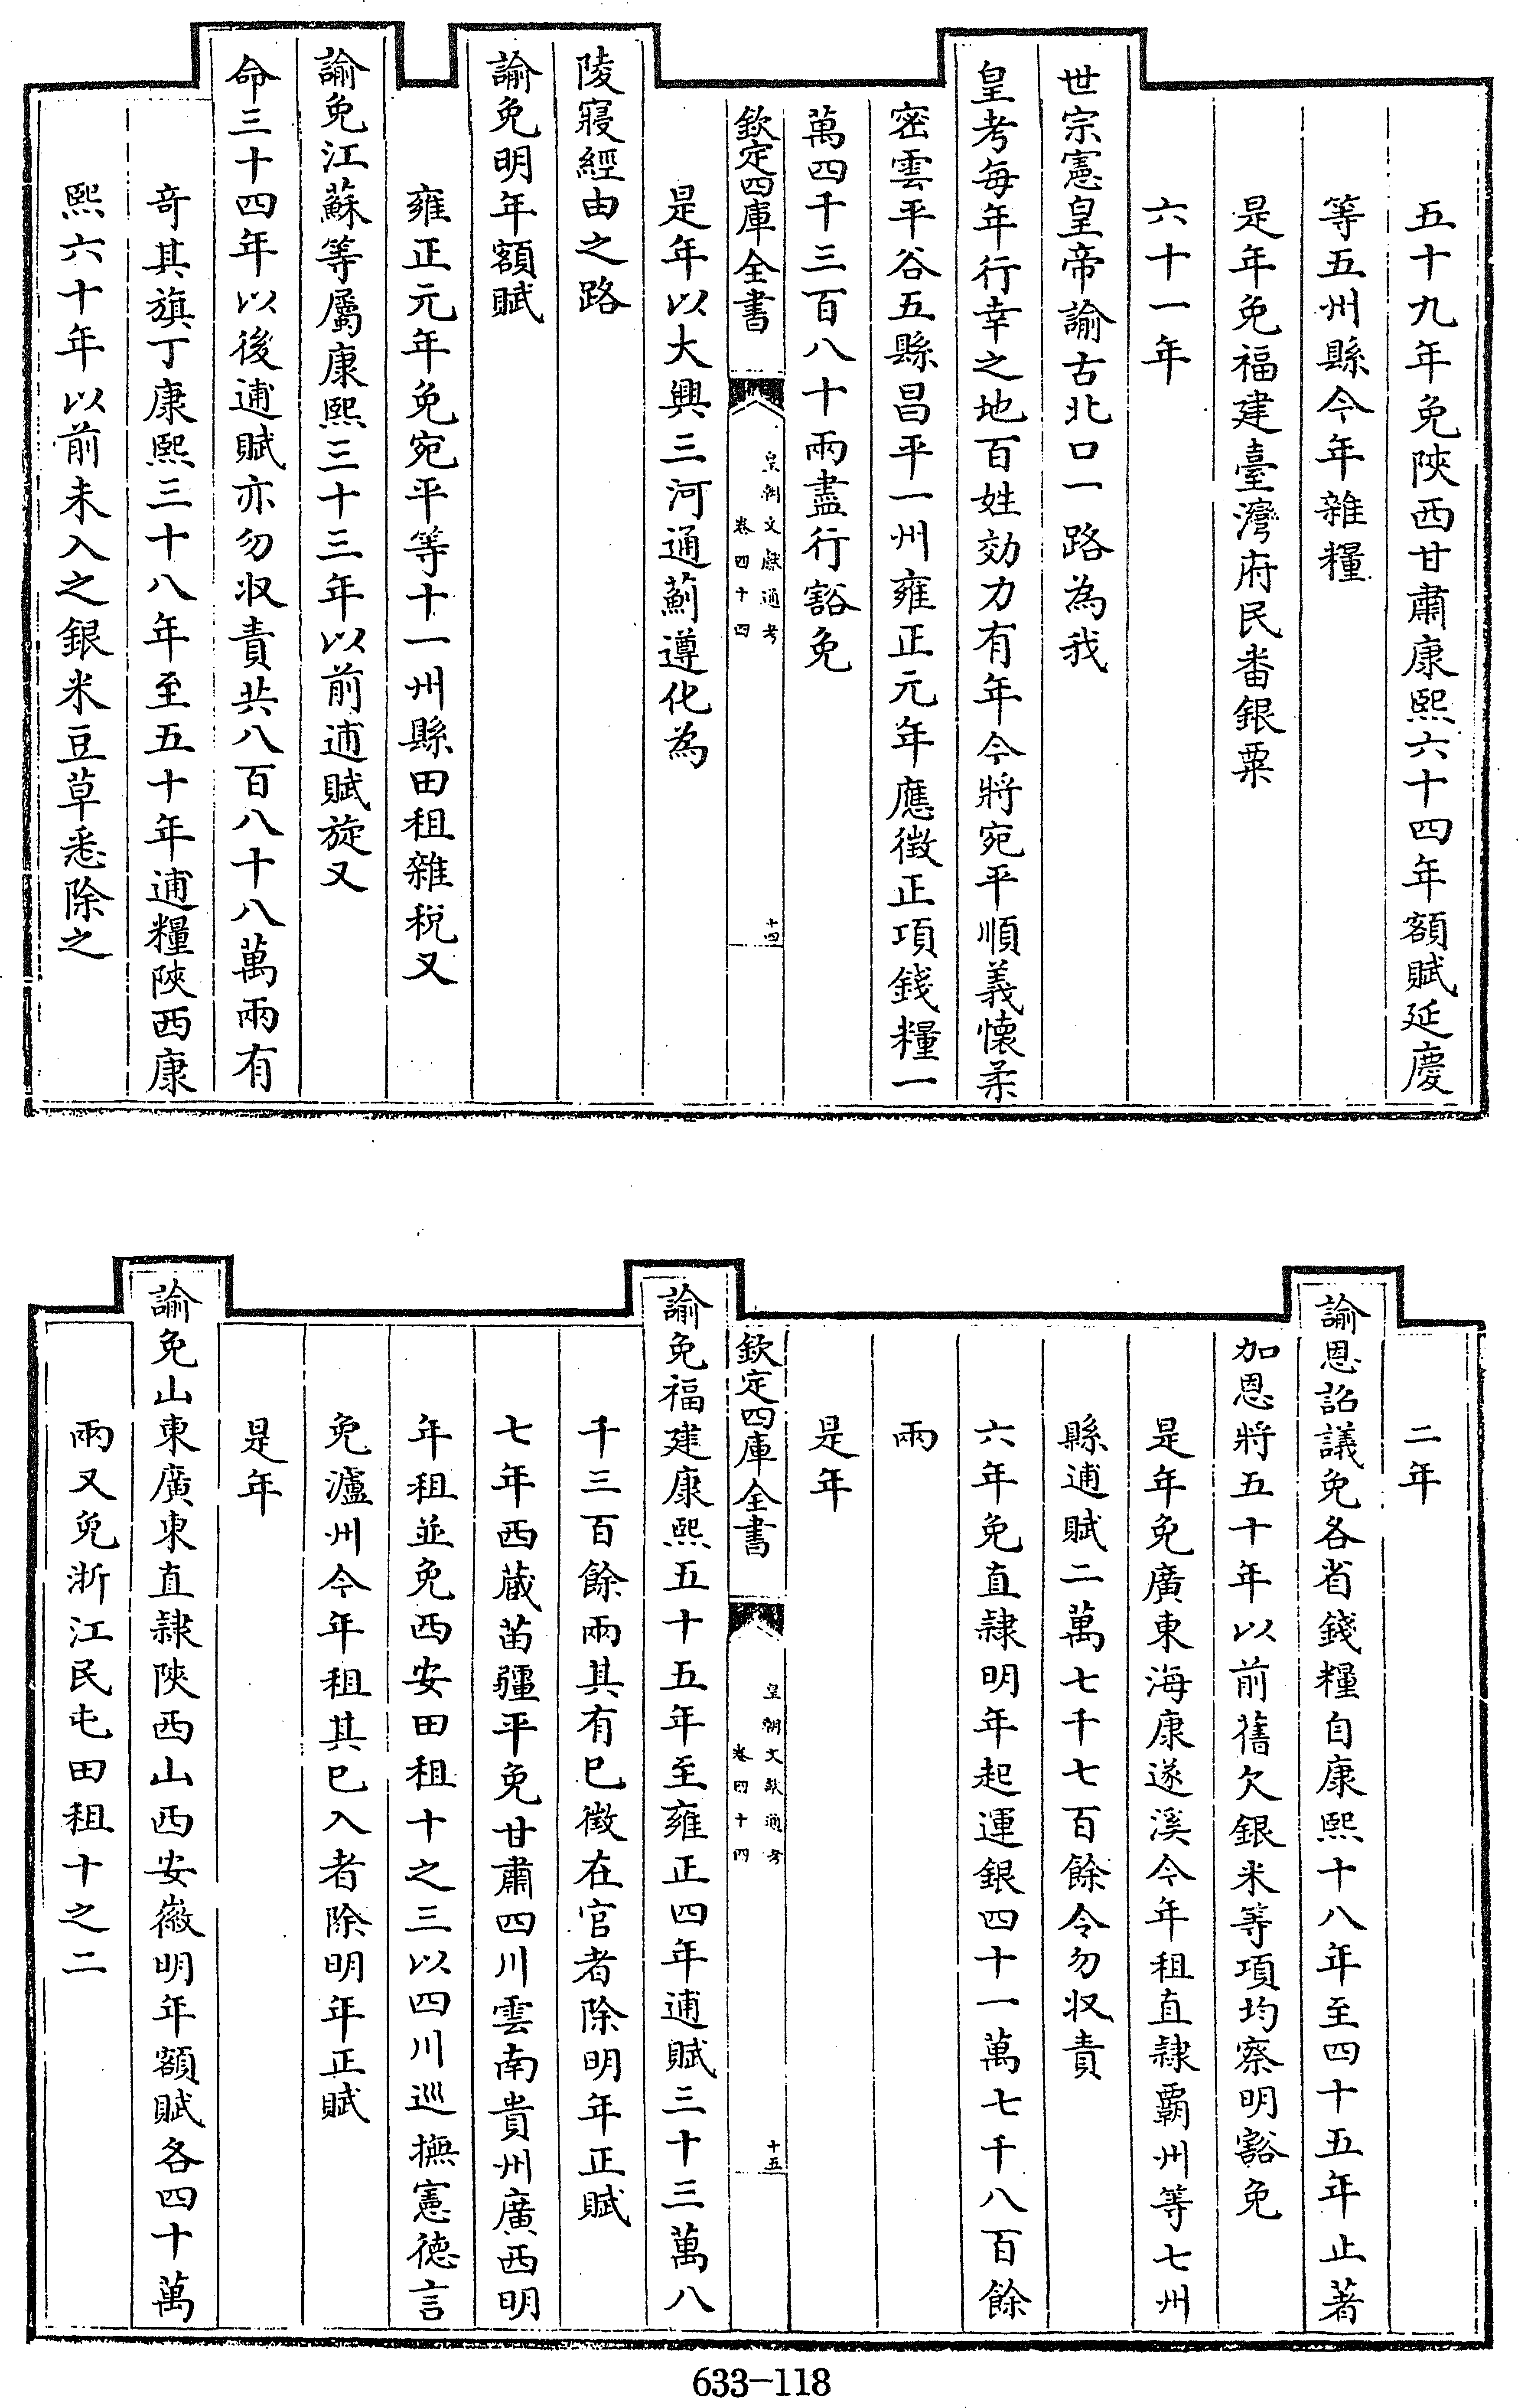 五十九年免陜西甘肅康熙六十四年額賦延慶
等五州縣今年雜糧
是年免福建臺灣府民番銀粟
六十一年
世宗憲皇帝諭古北口一路為我
皇考每年行幸之地百姓効力有年今將宛平順義懷柔
密雲平谷五縣昌平一州雍正元年應徵正項錢糧一
萬四千三百八十兩盡行豁免
欽定四庫全書
皇朝文獻通考
卷四十四
十四
是年以大興三河通薊遵化為
陵寢經由之路
諭免明年額賦
雍正元年免宛平等十一州縣田租雜稅又
諭免江蘇等屬康熙三十三年以前逋賦旋又
命三十四年以後逋賦亦勿収責共八百八十八萬兩有
奇其旗丁康熙三十八年至五十年逋糧陜西康
熙六十年以前未入之銀米豆草悉除之
二年
諭恩詔議免各省錢糧自康熙十八年至四十五年止著
加恩將五十年以前舊欠銀米等項均察明豁免
是年免廣東海康遂溪今年租直隷覇州等七州
縣逋賦二萬七千七百餘令勿収責
六年免直隷明年起運銀四十一萬七千八百餘
兩
是年
欽定四庫全書
皇朝文獻通考
卷四十四
十五
諭免福建康熙五十五年至雍正四年逋賦三十三萬八
千三百餘兩其有已徵在官者除明年正賦
七年西藏苗疆平免甘肅四川雲南貴州廣西明
年租並免西安田租十之三以四川巡撫憲德言
免瀘州今年租其已入者除明年正賦
是年
諭免山東廣東直隷陜西山西安徽明年額賦各四十萬
兩又免浙江民屯田租十之二
633-118